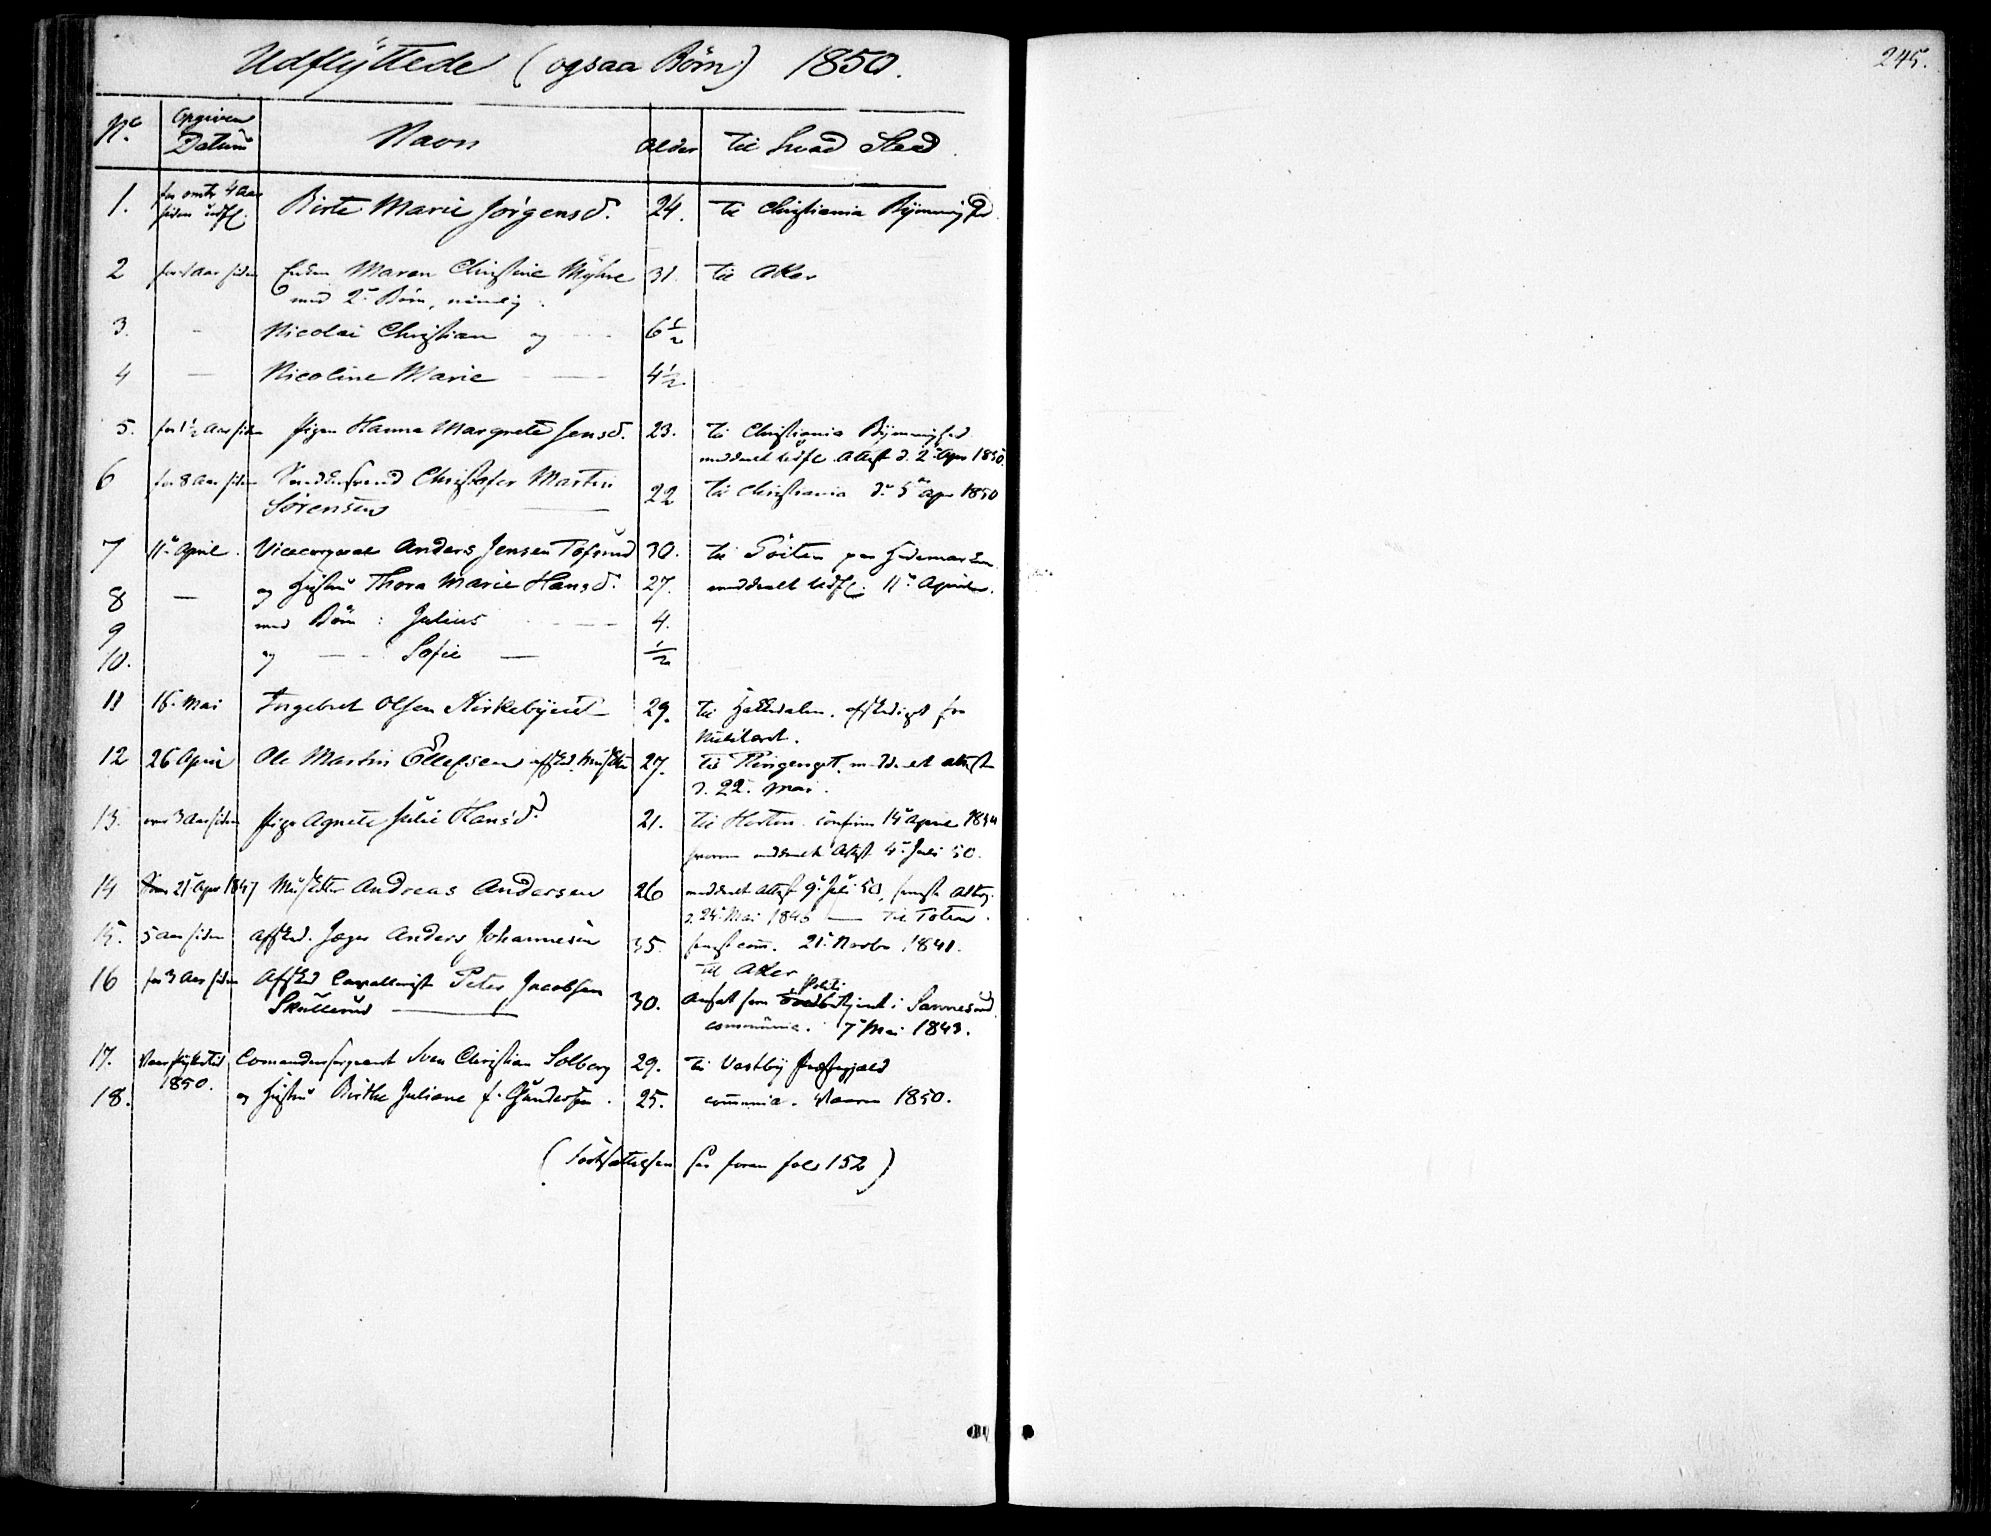 245.
Udflÿttede (ogsaa Børn) 1850.
No. Opgiven Datum Navn Alder til hvad Sted
1. for omtr 4 Aar siden udfl. Birte Marie Jörgensd. 24. til Christiania
2 for 1 Aar siden Enken Maren Christine Myhre 31. til Aker
med 2 Børn, nemlig
3. - Nicolai Christian og 6 1/2
4 - Nicoline Marie 4 1/2
5. for 1 1/2 Aar siden Pigen Hanna Margrete Jensd. 23. til Christiania
meddeelt Udfl. Attest d. 2 Apr 1850.
6 for 8 Aar siden Christofer Martin
Sørensen 22 til Christiania d. 5 Apr 1850
7 11 April. Vicecorporal Anders Jensen Tofsrud 30. til paa Hedemarken
8 — og Hustru Thora Marie Hansd. 27. meddeelt Udfl. 11 April
9 med Børn: Julius 4.
10. og — Sofie — 1/2
11 16 Mai Ingebret Olsen Kirkebÿeiet 29. til afskediget fra
12 26 April Ole Martin Ellefsen afsked. Musketer 27. til meddeelt attest
d. 22 Mai.
13. over 3 Aar siden Pige Agnete Julie Hansd. 21. til Horten. confirm 14 April
meddeelt Attest 4 Juli 50.
14 21 Apr 1847 Musketer Andreas Andersen 26 meddeelt attest 9 Juli 50,
d. 24 Mai 1846 — til Toten.
15. 5 Aar siden afsked. Jæger Anders Johannesen 35. com. 21 Novbr 1841.
til Aker
16 for 3 Aar siden Afsked Cavallerist Peter Jacobsen
Skullerud — 30. Ansat som Politibetjent i Sannesund
communic. 7 Mai 1843.
17. 1850. Comandeersergeant Sven Christian Solberg 29. til Vestby Præstegjæld
18. og Hustru Birthe Juliane f. Gundersen. 25. communic. Vaaren 1850.
(Fortsættelsen see foran fol. 152)